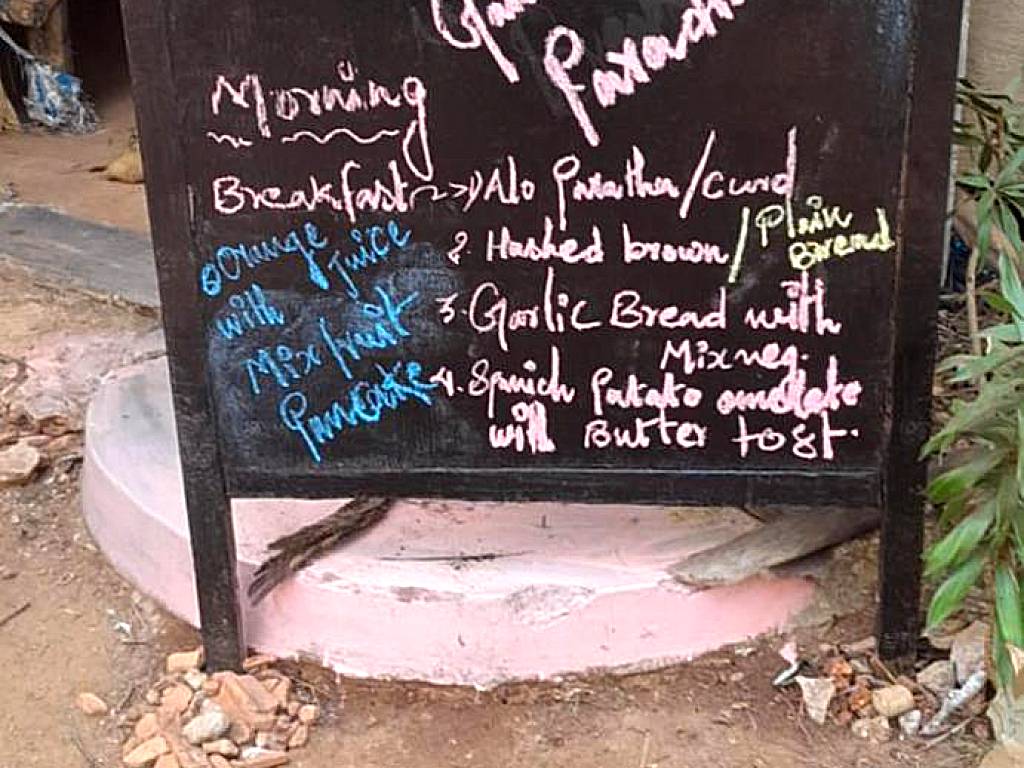 Morning
Breakfast 1) Alo Paratha / Curd
2. Hashed brown / Plain Bread
3. Garlic Bread with
Mix veg.
4. Spanich Patato omelate
with Butter tost.
Orange
Juice
with
Mix fruit
Pancake